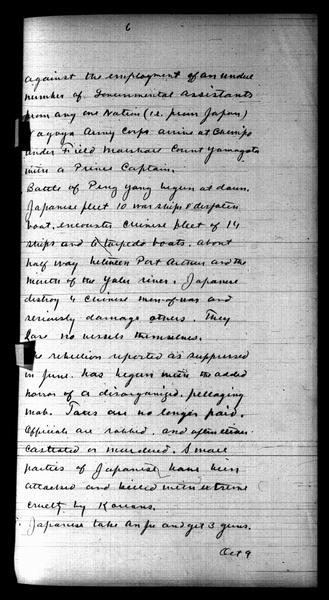 6
against the employment of an undue
number of Governmental assistants
from any one Nation (i.e. from Japan)
Nagoya Army Corps arrive at Chemipo
under Field Marshall Count Yamagata
with a Prince Captain.
Battle of Ping Yang begun at dawn.
Japanese fleet 10 war ships & dispatch
boat, encounter Chinese fleet of 14
ships and 6 torpedo boats. about
half way between Port Arthur and the
mouth of the Yalu river. Japanese
destroy 4 Chinese men-of-war and
seriously damage others. They
lose no vessels themselves.
The rebellion reported as suppressed
in June. has begun with the added
horror of a disorganized, pillaging
mob. Taxes are no longer paid.
Officials are robbed, and often
castrated or murdered. Small
parties of Japanese have been
attacked and killed with extreme
cruelty by Koreans.
Japanese take Anju and get 3 guns.
Oct 9